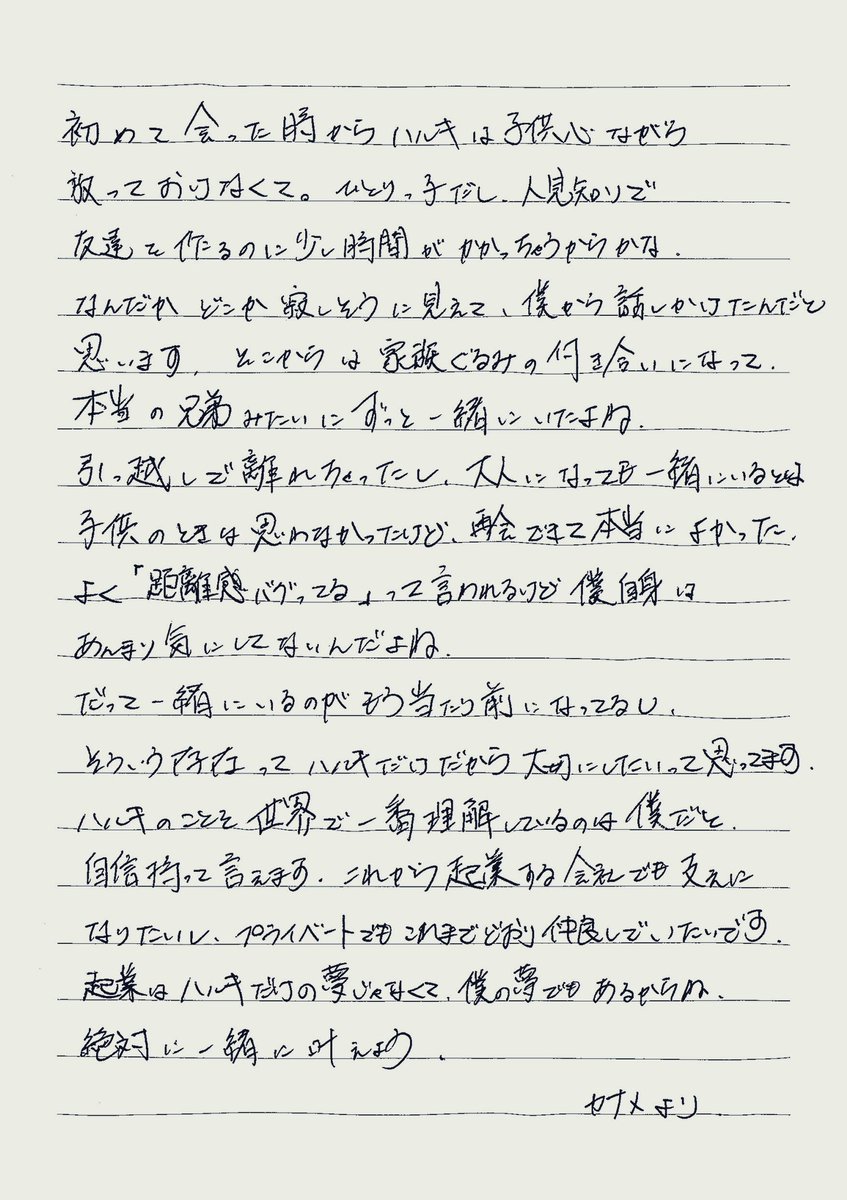 初めて会った時からハルキは子供心ながら
放っておけなくて。ひとりっ子だし、人見知りで
友達を作るのに少し時間がかかっちゃうからかな。
なんだかどこか寂しそうに見えて、僕から話しかけたんだと
思います。そこからは家族ぐるみの付き合いになって、
本当の兄弟みたいにずっと一緒にいたよね。
引っ越しで離れちゃったし、大人になっても一緒にいるとは
子供のときは思わなかったけど、再会できて本当によかった。
よく「距離感バグってる」って言われるけど僕自身は
あんまり気にしてないんだよね。
だって一緒にいるのがもう当たり前になってるし、
そういう存在ってハルキだけだから大切にしたいって思ってます。
ハルキのことを世界で一番理解しているのは僕だと、
自信持って言えます。これから起業する会社でも支えに
なりたいし、プライベートでもこれまでどおり仲良しでいたいです。
起業はハルキだけの夢じゃなくて、僕の夢でもあるからね。
絶対に一緒に叶えよう。
カナメより